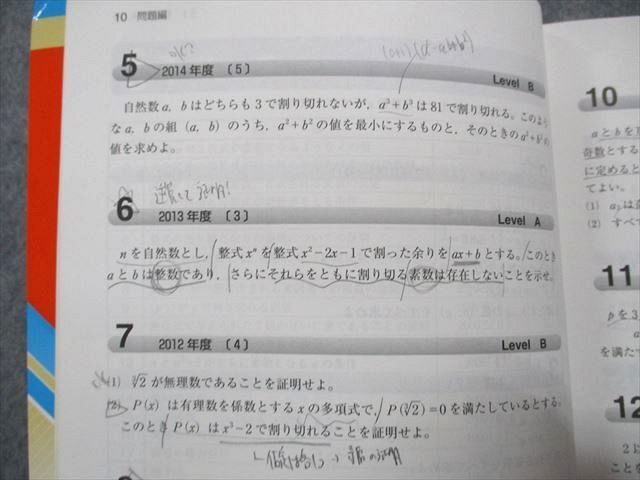 10 問題編
5 2014年度〔5〕 Level B
自然数a, bはどちらも3で割り切れないが, a³+b³は81で割り切れる。このよう
なa, bの組(a, b)のうち, a²+b²の値を最小にするものと, そのときのa²+b²の
値を求めよ。
6 2013年度〔3〕 Level A
nを自然数とし, 整式xⁿを整式x²-2x-1で割った余りをax+bとする。このとき
aとbは整数であり, さらにそれらをともに割り切る素数は存在しないことを示せ。
7 2012年度〔4〕 Level B
(1) ∛2が無理数であることを証明せよ。
(2) P(x)は有理数を係数とするxの多項式で, P(∛2)=0を満たしているとする。
このときP(x)はx³-2で割り切れることを証明せよ。
10
aとbを
奇数とする
に定めると
てよい。
(1) a₂は
(2) すべ
11
pを3
を満た
12
2以